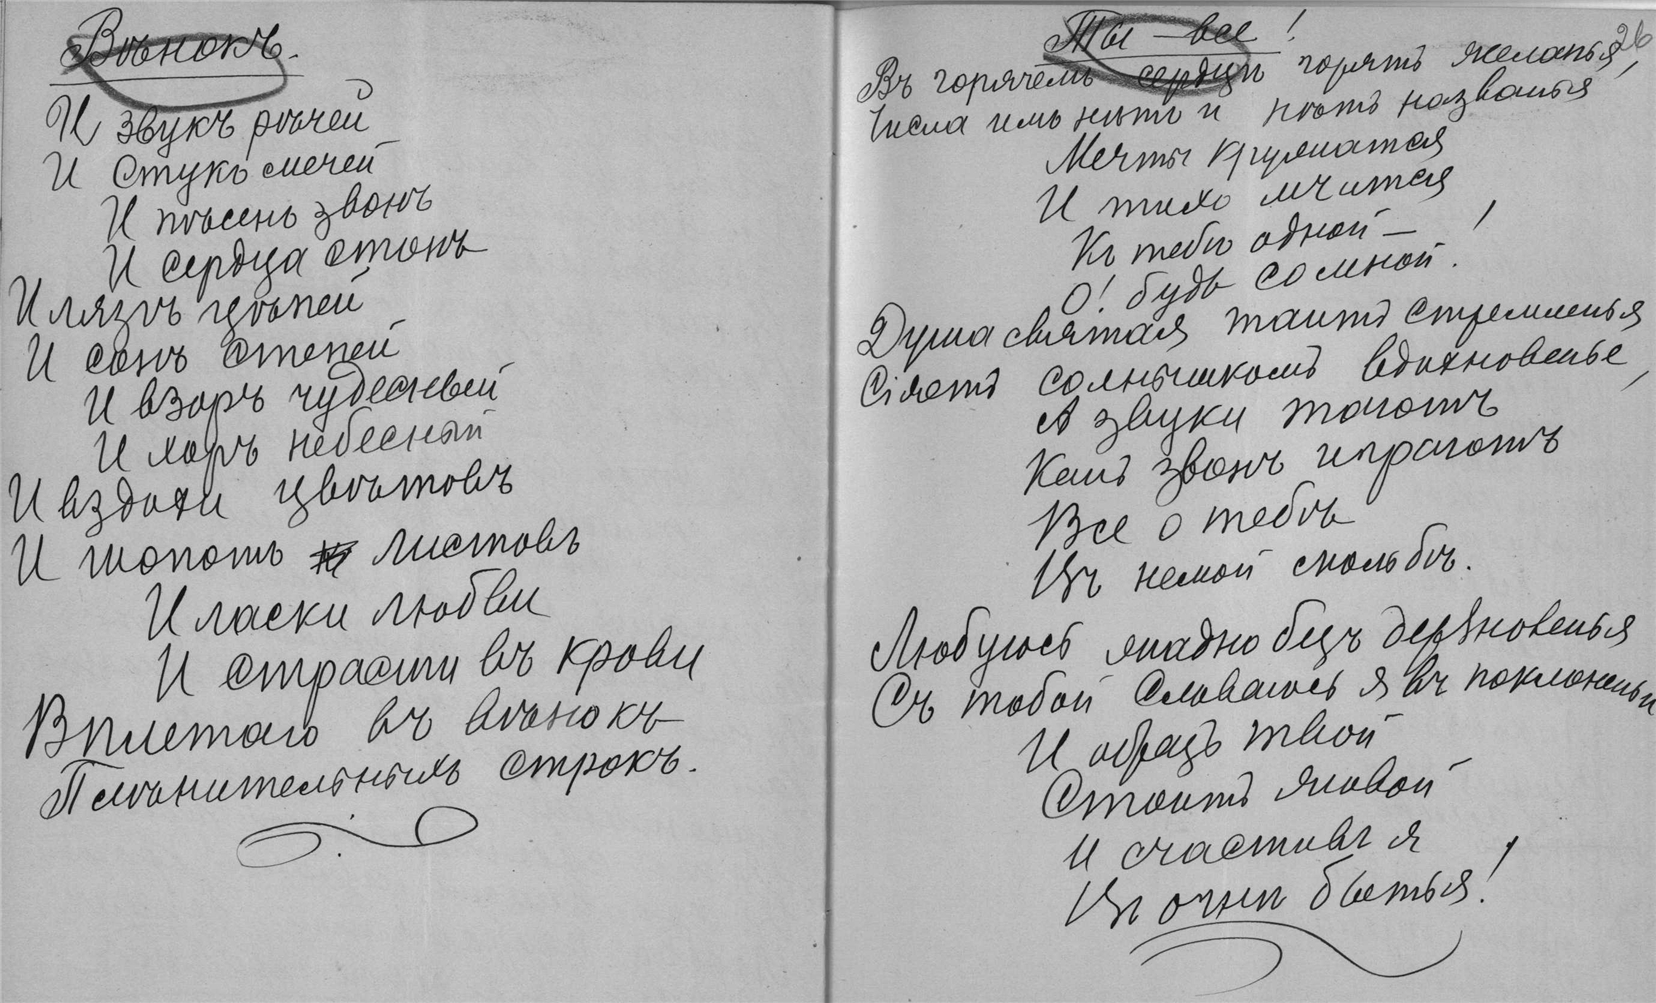 Вѣнокъ.
И звукъ рѣчей
И стукъ мечей
И пѣсень звонъ
И сердца стонъ
И лязгъ цѣпей
И сонъ степей
И взоръ чудесный
И хоръ небесный
И вздохи цвѣтовъ
И шопотъ листовъ
И ласки любви
И страсти въ крови
Вплетаю въ вѣнокъ
Плѣнительныхъ строкъ.
26
Ты – все!
Въ горячемъ сердцѣ горятъ желанья,
Числа имъ нѣтъ и нѣтъ названья
Мечты кружатся
И тихо мчится
Къ тебѣ одной –
О! будь со мной!
Душа святая таитъ стремленья
Сіяетъ солнышкомъ вдохновенье,
А звуки таютъ
Какъ звонъ играютъ
Все о тебѣ
Въ немой мольбѣ.
Любуюсь жадно безъ дерзновенья
Съ тобой сливаюсь я въ поклоненьи
И образъ твой
Стоитъ живой
И счастливъ я
Въ огнѣ бытья!